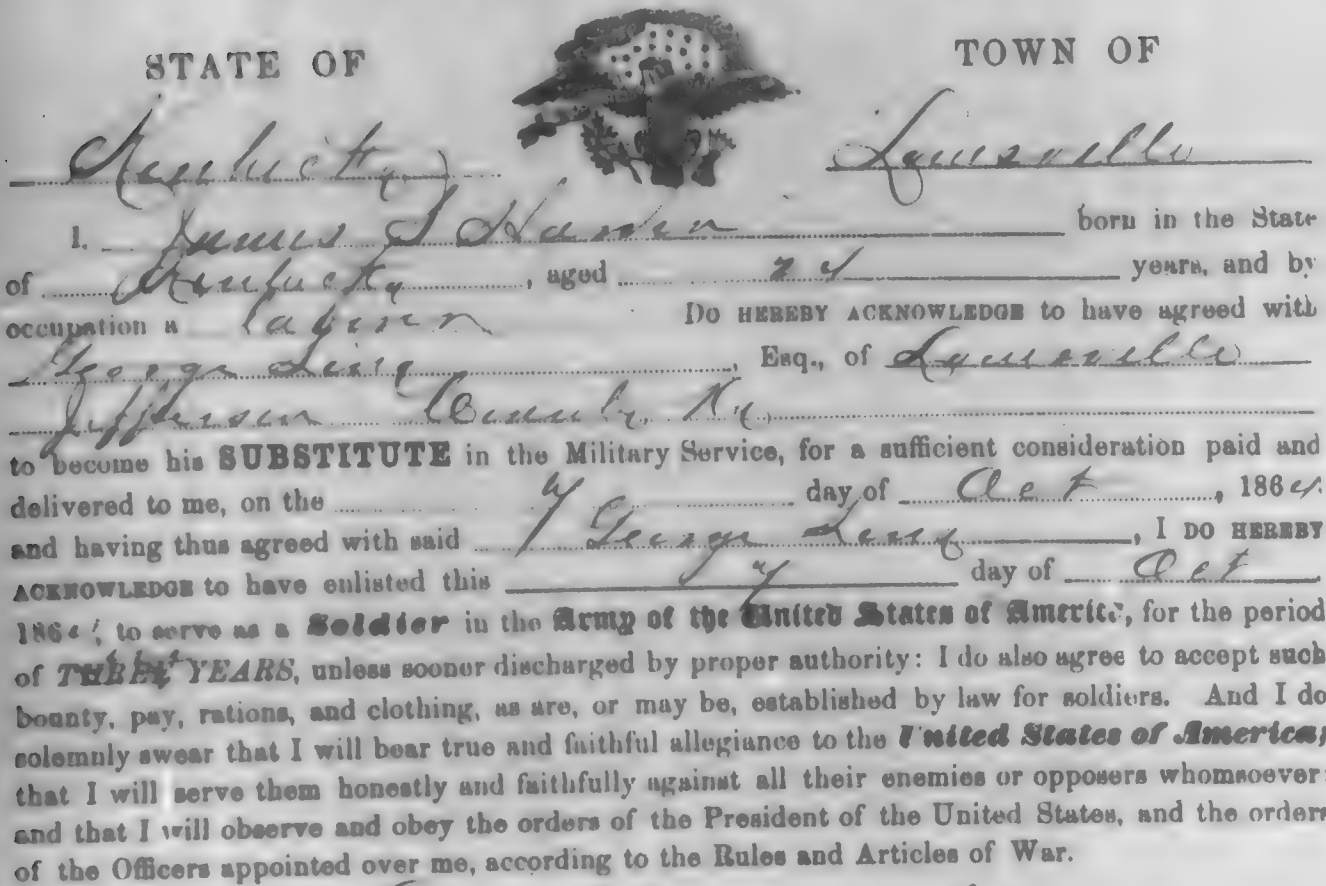 STATE OF TOWN OF
Kentucky Louisville
I. James Harden born in the State
of Kentucky, aged 24 years, and by
occupation a Do HEREBY ACKNOWLEDGE to have agreed with
George, Esq., of Louisville
Jefferson County, Ky.
to become his SUBSTITUTE in the Military Service, for a sufficient consideration paid and
delivered to me, on the day of Oct, 1864.
and having thus agreed with said George, I DO HEREBY
ACKNOWLEDGE to have enlisted this day of Oct
1864, to serve as a Soldier in the Army of the United States of America, for the period
of YEARS, unless sooner discharged by proper authority: I do also agree to accept such
bounty, pay, rations, and clothing, as are, or may be, established by law for soldiers. And I do
solemnly swear that I will bear true and faithful allegiance to the United States of America;
that I will serve them honestly and faithfully against all their enemies or opposers whomsoever:
and that I will observe and obey the orders of the President of the United States, and the orders
of the Officers appointed over me, according to the Rules and Articles of War.